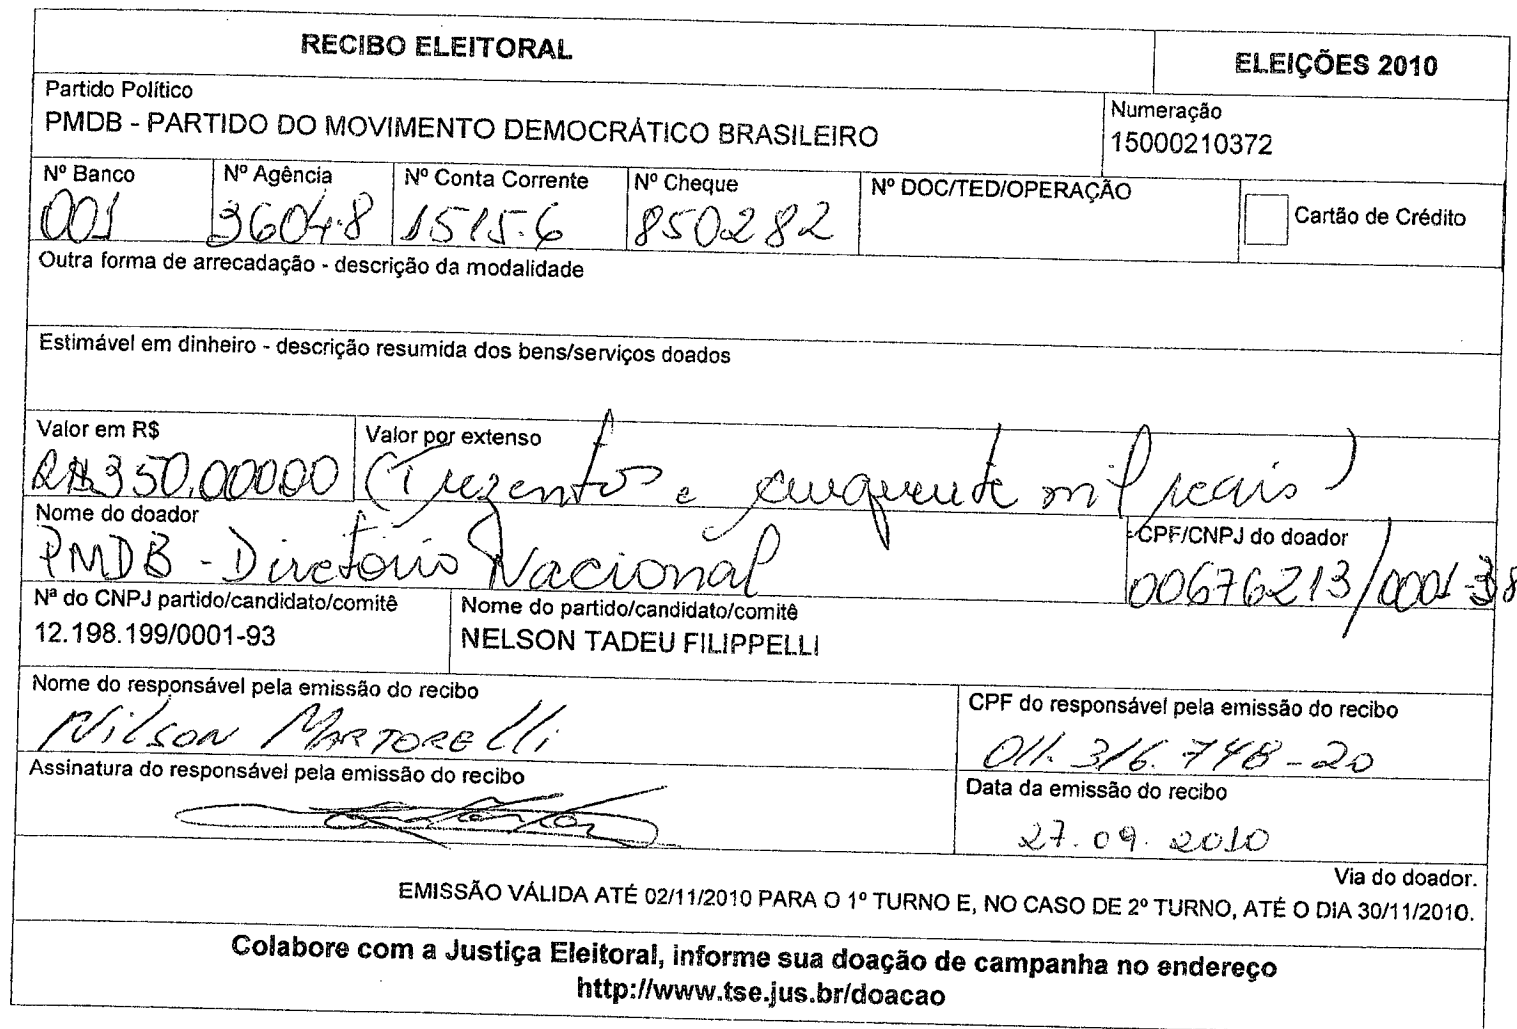 RECIBO ELEITORAL
ELEIÇÕES 2010
Partido Político
PMDB - PARTIDO DO MOVIMENTO DEMOCRÁTICO BRASILEIRO
Numeração
15000210372
Nº Banco
001
Nº Agência
3604-8
Nº Conta Corrente
1515-6
Nº Cheque
850282
Nº DOC/TED/OPERAÇÃO
Cartão de Crédito
Outra forma de arrecadação - descrição da modalidade
Estimável em dinheiro - descrição resumida dos bens/serviços doados
Valor em R$
R$350.000,00
Valor por extenso
(Trezentos e cinquente mil reais)
Nome do doador
PMDB - Diretório Nacional
CPF/CNPJ do doador
00676213/0001-38
Nª do CNPJ partido/candidato/comitê
12.198.199/0001-93
Nome do partido/candidato/comitê
NELSON TADEU FILIPPELLI
Nome do responsável pela emissão do recibo
Nilson Martorelli
CPF do responsável pela emissão do recibo
011.316.748-20
Assinatura do responsável pela emissão do recibo
Data da emissão do recibo
27.09.2010
Via do doador.
EMISSÃO VÁLIDA ATÉ 02/11/2010 PARA O 1º TURNO E, NO CASO DE 2º TURNO, ATÉ O DIA 30/11/2010.
Colabore com a Justiça Eleitoral, informe sua doação de campanha no endereço
http://www.tse.jus.br/doacao